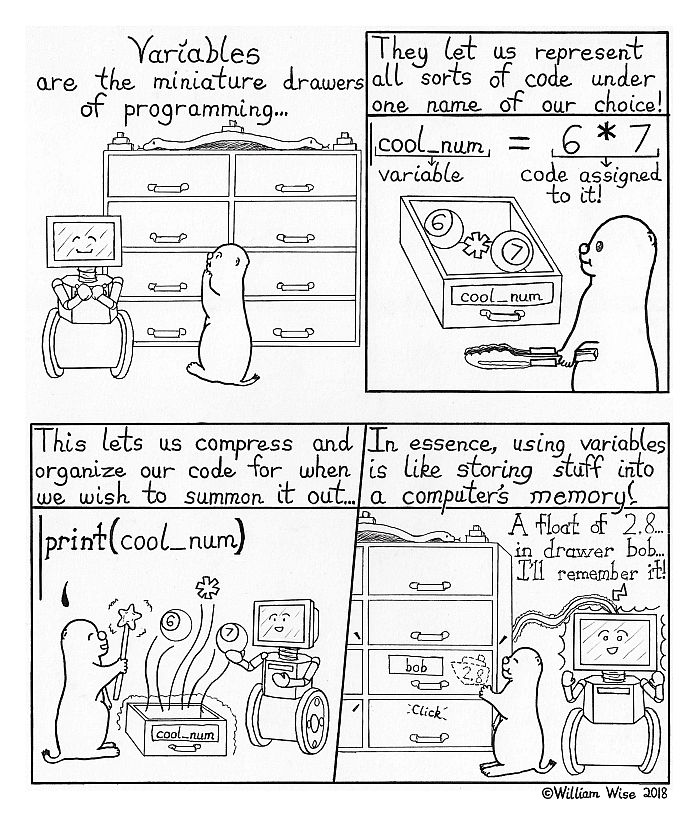 Variables
are the miniature drawers
of programming...
They let us represent
all sorts of code under
one name of our choice!
cool_num = 6 * 7
variable
code assigned
to it!
6
*
7
cool_num
This lets us compress and
organize our code for when
we wish to summon it out...
print(cool_num)
6
*
7
cool_num
In essence, using variables
is like storing stuff into
a computer's memory!
A float of 2.8...
in drawer bob...
I'll remember it!
bob
2.8
Click
©William Wise 2018